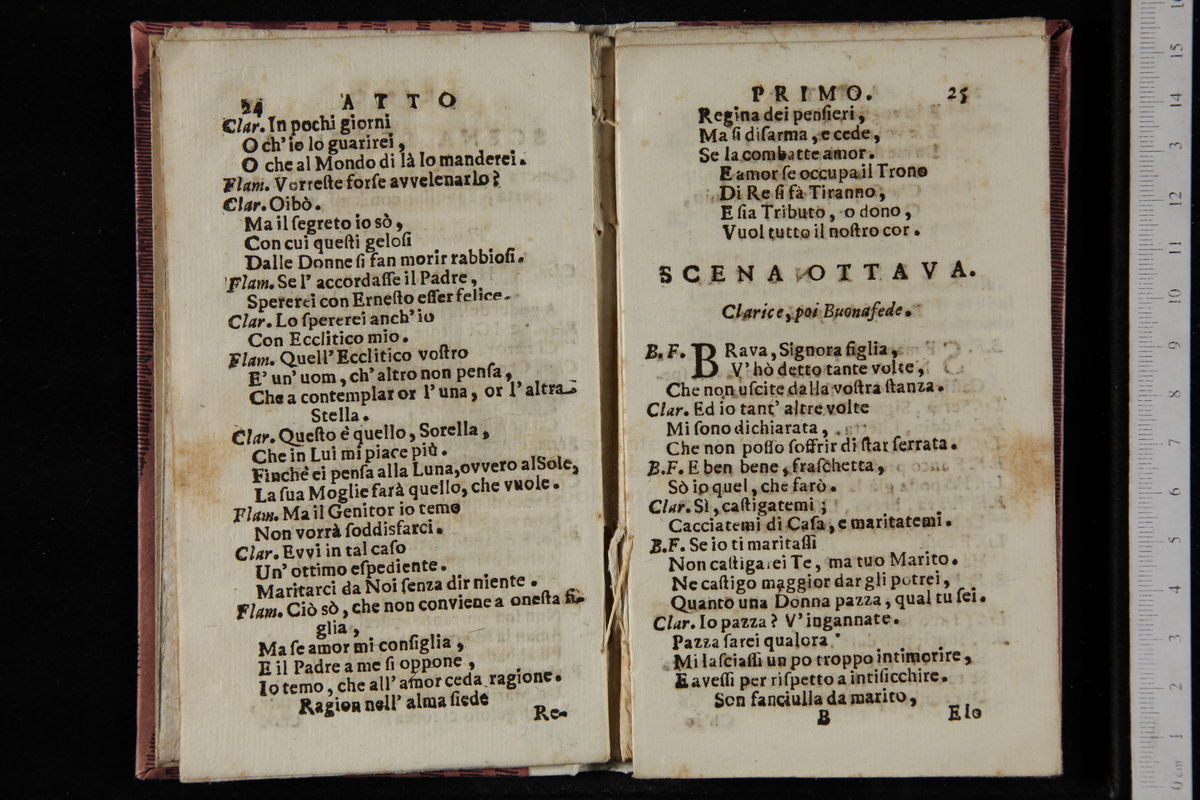 24 ATTO
Clar. In pochi giorni
O ch' io lo guarirei,
O che al Mondo di là lo manderei.
Flam. Vorreſte forſe avvelenarlo?
Clar. Oibò.
Ma il ſegreto io sò,
Con cui queſti geloſi
Dalle Donne ſi fan morir rabbioſi.
Flam. Se l' accordaſſe il Padre,
Spererei con Erneſto eſſer felice.
Clar. Lo ſpererei anch' io
Con Ecclitico mio.
Flam. Quell' Ecclitico voſtro
E' un' uom, ch' altro non penſa,
Che a contemplar or l' una, or l' altra
Stella.
Clar. Queſto è quello, Sorella,
Che in Lui mi piace più.
Finchè ei penſa alla Luna, ovvero al Sole,
La ſua Moglie farà quello, che vuole.
Flam. Ma il Genitor io temo
Non vorrà ſoddisfarci.
Clar. Evvi in tal caſo
Un' ottimo eſpediente.
Maritarci da Noi ſenza dir niente.
Flam. Ciò sò, che non conviene a oneſta fi-
glia,
Ma ſe amor mi conſiglia,
E il Padre a me ſi oppone,
Io temo, che all' amor ceda ragione.
Ragion nell' alma ſiede
Re-
PRIMO. 25
Regina dei penſieri,
Ma ſi diſarma, e cede,
Se la combatte amor.
E amor ſe occupa il Trono
Di Re ſi fà Tiranno,
E ſia Tributo, o dono,
Vuol tutto il noſtro cor.
SCENA OTTAVA.
Clarice, poi Buonafede.
B. F. BRava, Signora figlia,
V' hò detto tante volte,
Che non uſcite dalla voſtra ſtanza.
Clar. Ed io tant' altre volte
Mi ſono dichiarata,
Che non poſſo ſoffrir di ſtar ſerrata.
B. F. E ben bene, fraſchetta,
Sò io quel, che farò.
Clar. Sì, caſtigatemi;
Cacciatemi di Caſa, e maritatemi.
B. F. Se io ti maritaſſi
Non caſtigarei Te, ma tuo Marito.
Ne caſtigo maggior dar gli potrei,
Quanto una Donna pazza, qual tu ſei.
Clar. Io pazza? V' ingannate.
Pazza ſarei qualora
Mi laſciaſſi un po troppo intimorire,
E aveſſi per riſpetto a intiſicchire.
Son fanciulla da marito,
B E lo